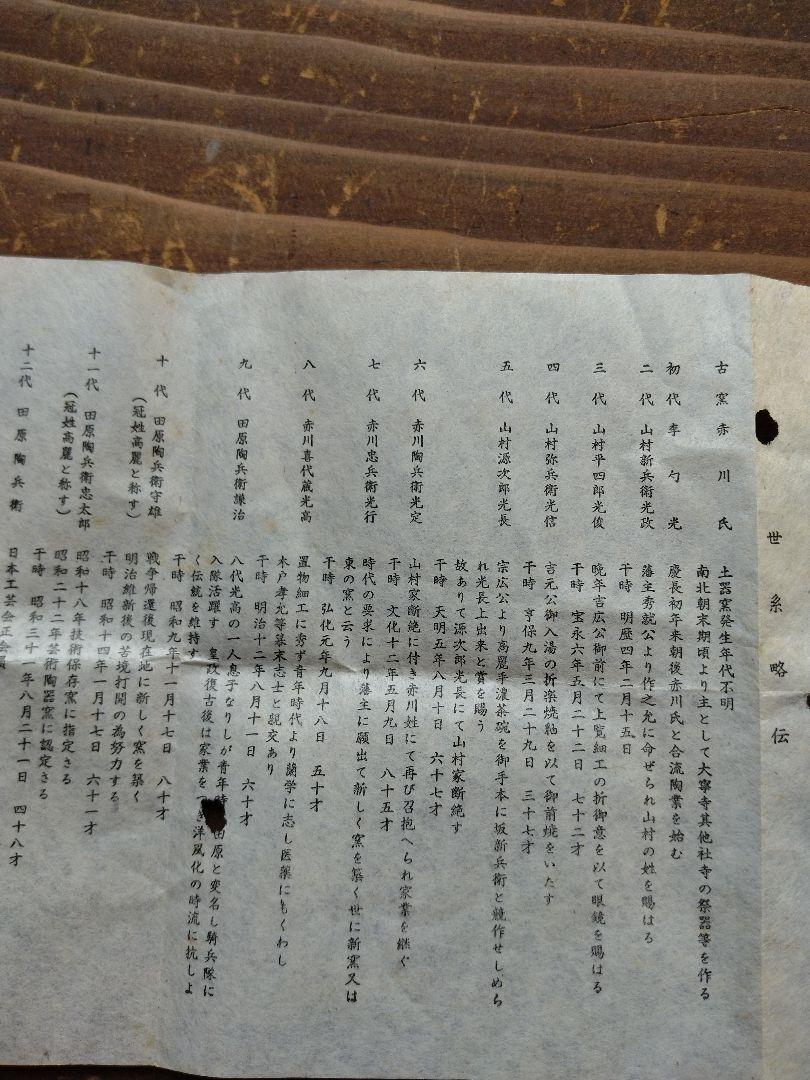 世系略伝
古窯赤川氏
土器窯発生年代不明
南北朝末期頃より主として大寧寺其他社寺の祭器等を作る
初代 李勺光
慶長初年来朝後赤川氏と合流陶業を始む
二代 山村新兵衛光政
藩主秀就公より作之允に命ぜられ山村の姓を賜はる
干時 明歴四年二月十五日
三代 山村平四郎光俊
晩年吉広公御前にて上覧細工の折御意を以て眼鏡を賜はる
干時 宝永六年五月二十二日 七十二才
四代 山村弥兵衛光信
吉元公御入湯の折楽焼釉を以て御前焼をいたす
干時 享保九年三月二十九日 三十七才
五代 山村源次郎光長
宗広公より高麗手濃茶碗を御手本に坂新兵衛と競作せしめら
れ光長上出来と賞を賜う
故ありて源次郎光長にて山村家断絶す
干時 天明五年八月十日 六十七才
六代 赤川陶兵衛光定
山村家断絶に付き赤川姓にて再び召抱へられ家業を継ぐ
干時 文化十二年五月九日 八十五才
七代 赤川忠兵衛光行
時代の要求により藩主に願出て新しく窯を築く世に新窯又は
東の窯と云う
干時 弘化元年九月十八日 五十才
八代 赤川喜代蔵光高
置物細工に秀ず青年時代より蘭学に志し医薬にもくわし
木戸孝允等幕末志士と親交あり
干時 明治十二年八月十一日 六十才
九代 田原陶兵衛謙治
八代光高の一人息子なりしが青年時 田原と変名し騎兵隊に
入隊活躍す 皇政復古後は家業をつぎ洋風化の時流に抗しよ
く伝統を維持す
干時 昭和九年十一月十七日 八十才
十代 田原陶兵衛守雄
(冠姓高麗と称す)
戦争帰還後現在地に新しく窯を築く
明治維新後の苦境打開の為努力する
干時 昭和十四年一月十七日 六十一才
十一代 田原陶兵衛忠太郎
(冠姓高麗と称す)
昭和十八年技術保存窯に指定さる
昭和二十二年芸術陶器窯に認定さる
干時 昭和三十一年八月二十一日 四十八才
十二代 田原陶兵衛
日本工芸会正会員